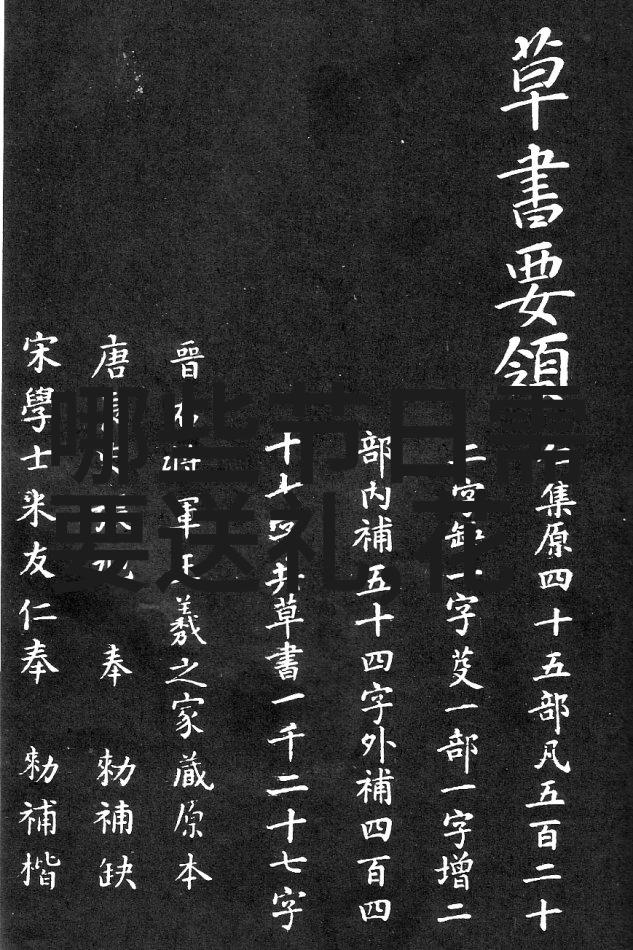 草書要領
集原四十五部凡五百二十
二字缺一字芟一部一字增二
部内補五十四字外補四百四
十七字共草書一千二十七字
晉右將軍王羲之家藏原本
唐長史張旭 奉 勅補缺
宋學士米友仁奉 勅補楷
哪些节日需
要送礼,花